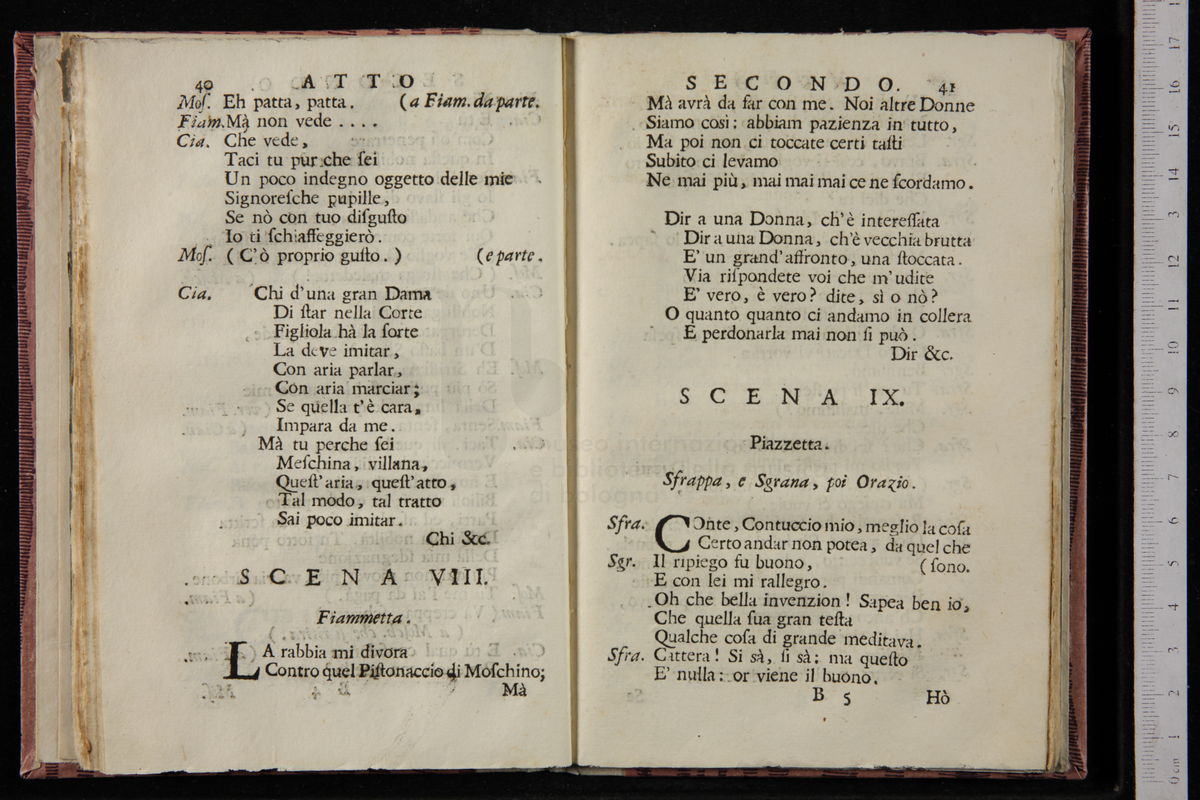 40 ATTO
Moſ. Eh patta, patta. (a Fiam. da parte.
Fiam. Mà non vede ....
Cia. Che vede,
Taci tu pur che ſei
Un poco indegno oggetto delle mie
Signoreſche pupille,
Se nò con tuo diſguſto
Io ti ſchiaffeggierò.
Moſ. (C'ò proprio guſto.) (e parte.
Cia. Chi d'una gran Dama
Di ſtar nella Corte
Figliola hà la ſorte
La deve imitar,
Con aria parlar,
Con aria marciar;
Se quella t'è cara,
Impara da me.
Mà tu perche ſei
Meſchina, villana,
Queſt'aria, queſt'atto,
Tal modo, tal tratto
Sai poco imitar.
Chi &c.
SCENA VIII.
Fiammetta.
LA rabbia mi divora
Contro quel Piſtonaccio di Moſchino;
Mà
SECONDO. 41
Mà avrà da far con me. Noi altre Donne
Siamo così: abbiam pazienza in tutto,
Ma poi non ci toccate certi taſti
Subito ci levamo
Ne mai più, mai mai mai ce ne ſcordamo.
Dir a una Donna, ch'è intereſſata
Dir a una Donna, ch'è vecchia brutta
E' un grand'affronto, una ſtoccata.
Via riſpondete voi che m'udite
E' vero, è vero? dite, sì o nò?
O quanto quanto ci andamo in collera
E perdonarla mai non ſi può.
Dir &c.
SCENA IX.
Piazzetta.
Sfrappa, e Sgrana, poi Orazio.
Sfra. COnte, Contuccio mio, meglio la coſa
Certo andar non potea, da quel che
Sgr. Il ripiego fu buono, (ſono.
E con lei mi rallegro.
Oh che bella invenzion! Sapea ben io,
Che quella ſua gran teſta
Qualche coſa di grande meditava.
Sfra. Cattera! Si sà, ſi sà: ma queſto
E' nulla: or viene il buono.
B 5 Hò
museo internazionale
e biblioteca della musica
di bologna
0 cm 1 2 3 4 5 6 7 8 9 10 11 12 13 14 15 16 17